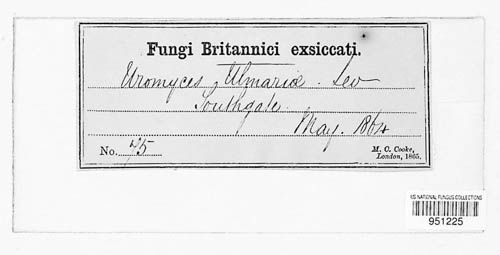 Fungi Britannici exsiccati.
Uromyces, Ulmariæ. Lev
Southgate.
May. 1864
No. 75
M. C. Cooke,
London, 1865.
US NATIONAL FUNGUS COLLECTIONS
951225